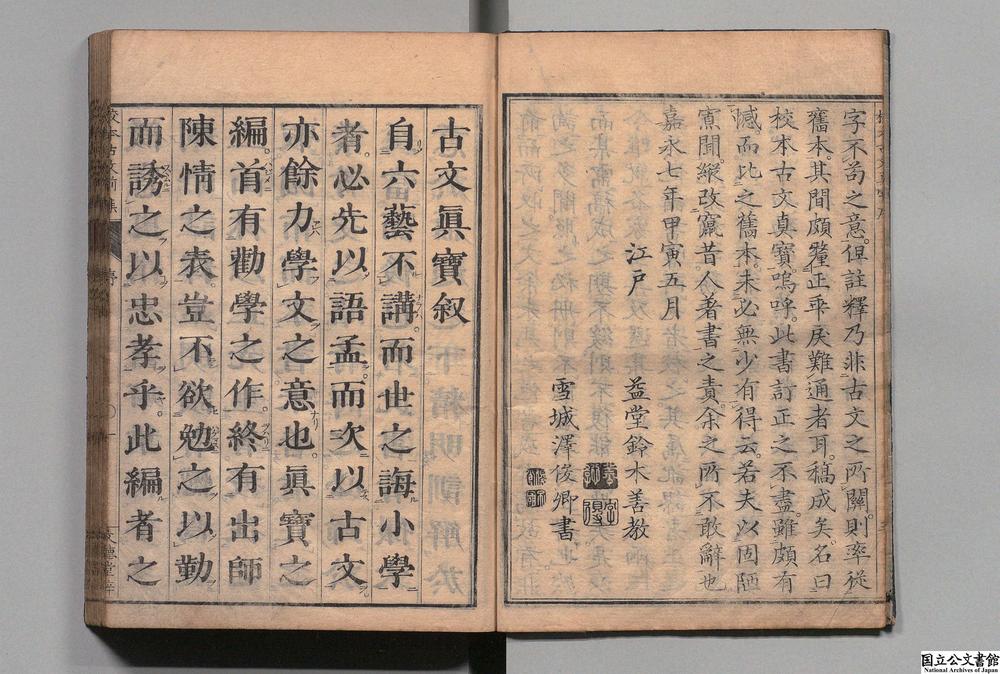 字不苟之意但註釋乃非古文之所關則率從
舊本其間頗釐正乖戾難通者耳稿成矣名曰
校本古文真寶嗚呼此書訂正之不盡雖頗有
憾而比之舊本未必無少有得云若夫以固陋
寡聞縱改竄昔人著書之責余之所不敢辭也
嘉永七年甲寅五月
江戸 益堂鈴木善教
雪城澤俊卿書
古文眞寶叙
自六藝不講而世之誨小學
者必先以語孟而次以古文
亦餘力學文之意也眞寶之
編首有勸學之作終有出師
陳情之表豈不欲勉之以勤
而誘之以忠孝乎此編者之
国立公文書館
National Archives of Japan